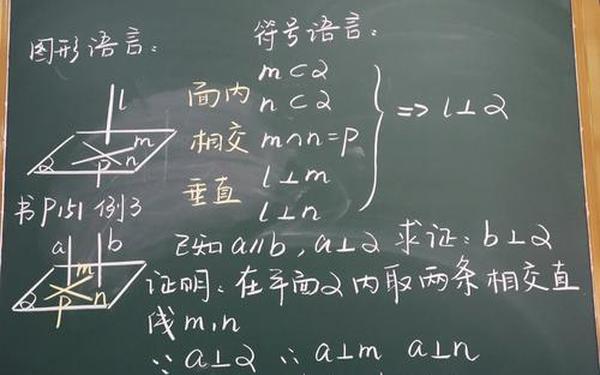 图形语言:
l
m
α P n
符号语言:
面内 m⊂α
n⊂α
相交 m∩n=P
垂直 l⊥m
l⊥n
=> l⊥α
书P151 例3
a b
m
α P n
已知a∥b,a⊥α 求证:b⊥α
证明:在平面α内取两条相交直
线m,n
∵a⊥α ∴a⊥m a⊥n